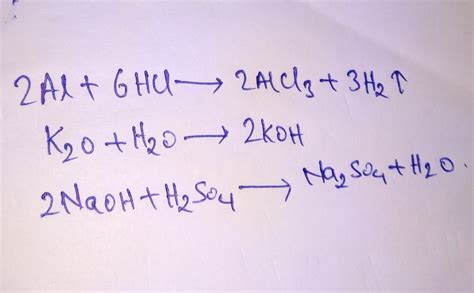 2Al + 6HCl → 2AlCl₃ + 3H₂↑
K₂O + H₂O → 2KOH
2NaOH + H₂SO₄ → Na₂SO₄ + H₂O.